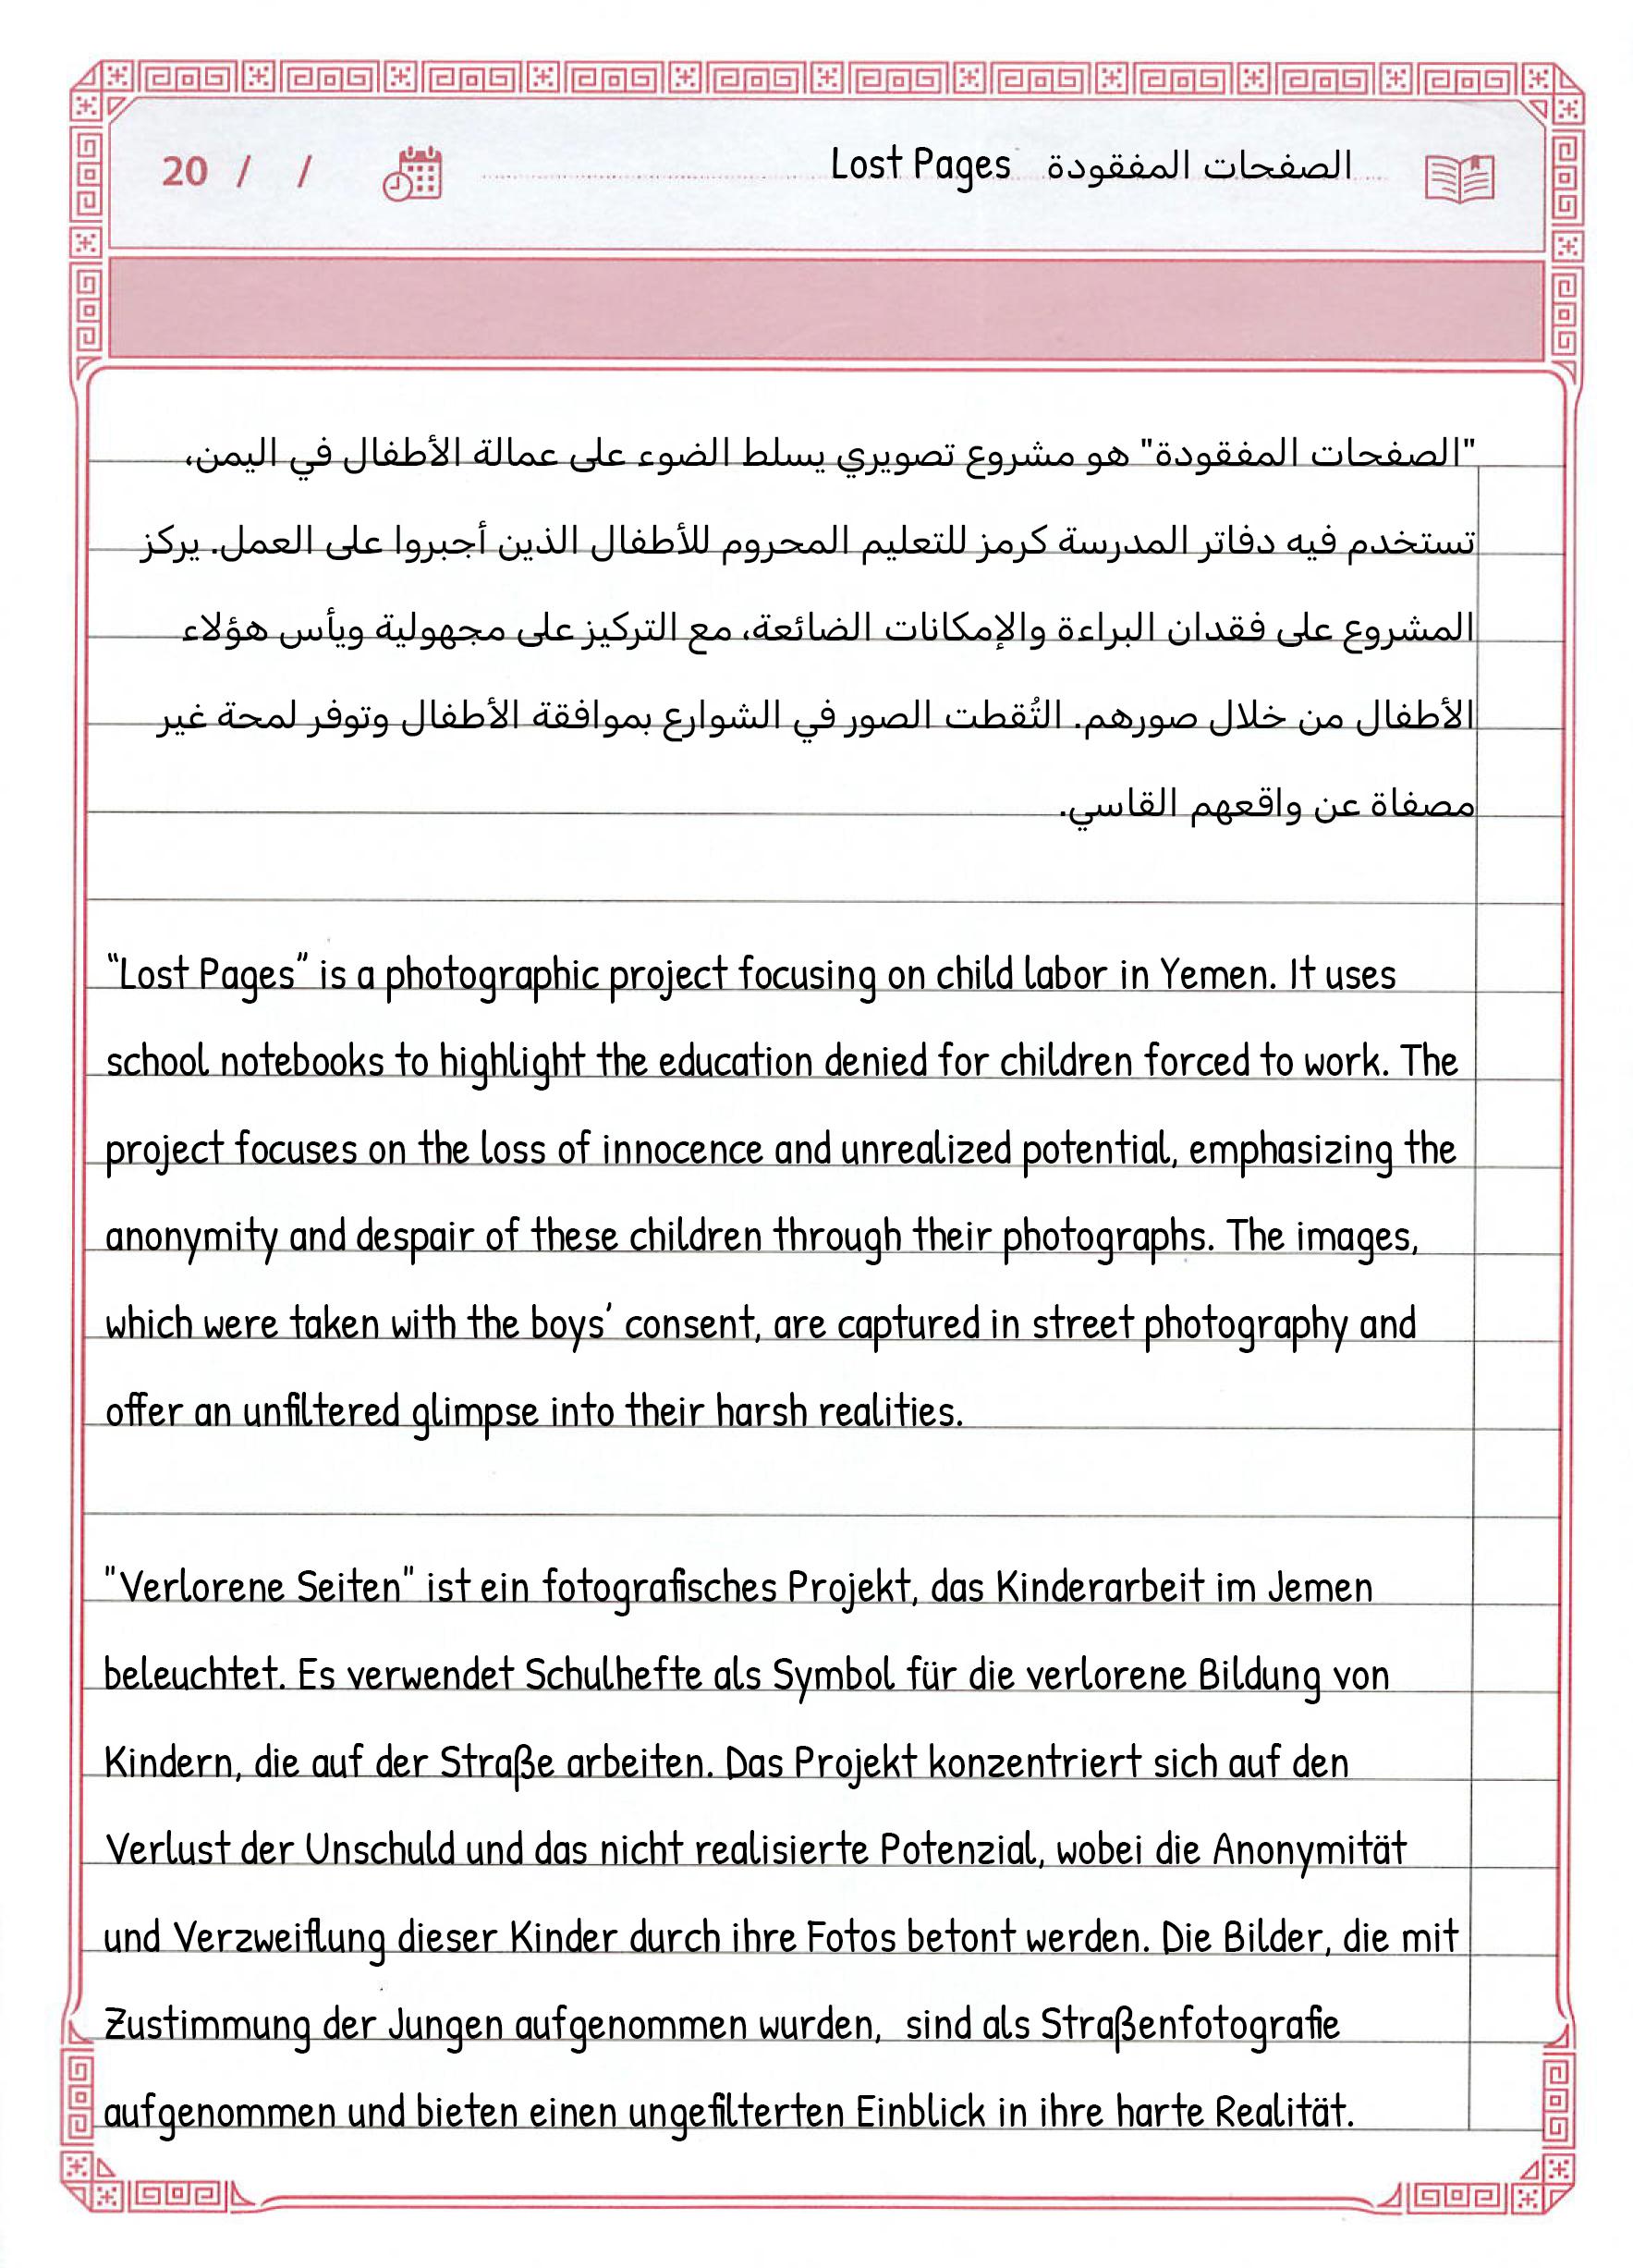 20 / /
الصفحات المفقودة Lost Pages
"الصفحات المفقودة" هو مشروع تصويري يسلط الضوء على عمالة الأطفال في اليمن،
تستخدم فيه دفاتر المدرسة كرمز للتعليم المحروم للأطفال الذين أجبروا على العمل. يركز
المشروع على فقدان البراءة والإمكانات الضائعة، مع التركيز على مجهولية ويأس هؤلاء
الأطفال من خلال صورهم. التُقطت الصور في الشوارع بموافقة الأطفال وتوفر لمحة غير
مصفاة عن واقعهم القاسي.
“Lost Pages” is a photographic project focusing on child labor in Yemen. It uses
school notebooks to highlight the education denied for children forced to work. The
project focuses on the loss of innocence and unrealized potential, emphasizing the
anonymity and despair of these children through their photographs. The images,
which were taken with the boys’ consent, are captured in street photography and
offer an unfiltered glimpse into their harsh realities.
"Verlorene Seiten" ist ein fotografisches Projekt, das Kinderarbeit im Jemen
beleuchtet. Es verwendet Schulhefte als Symbol für die verlorene Bildung von
Kindern, die auf der Straße arbeiten. Das Projekt konzentriert sich auf den
Verlust der Unschuld und das nicht realisierte Potenzial, wobei die Anonymität
und Verzweiflung dieser Kinder durch ihre Fotos betont werden. Die Bilder, die mit
Zustimmung der Jungen aufgenommen wurden,  sind als Straßenfotografie
aufgenommen und bieten einen ungefilterten Einblick in ihre harte Realität.